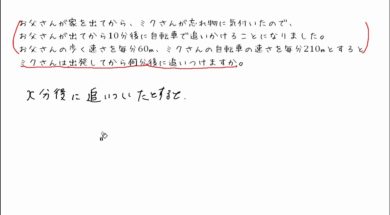 お父さんが家を出てから、ミクさんが忘れ物に気付いたので、
お父さんが出てから10分後に自転車で追いかけることになりました。
お父さんの歩く速さを毎分60m、ミクさんの自転車の速さを毎分210mとすると
ミクさんは出発してから何分後に追いつけますか。
x分後に追いついたとすると、